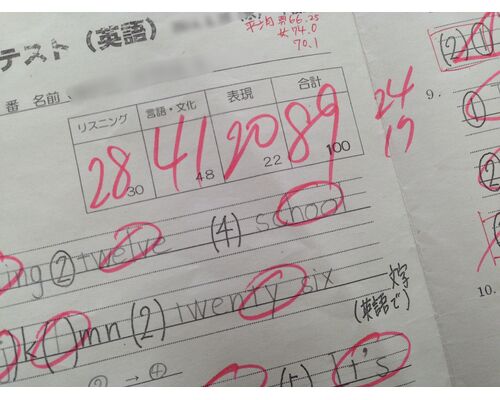 テスト(英語)
平均 男66.25
女74.0
70.1
番 名前
リスニング 言語・文化 表現 合計
28 41 20 89
30 48 22 100
24
17
(2) ①
9. ①
②
ing ② twelve (4) school
j k (l) mn (2) twenty six
文字
(英語で)
② → ④
(5) It's
10.